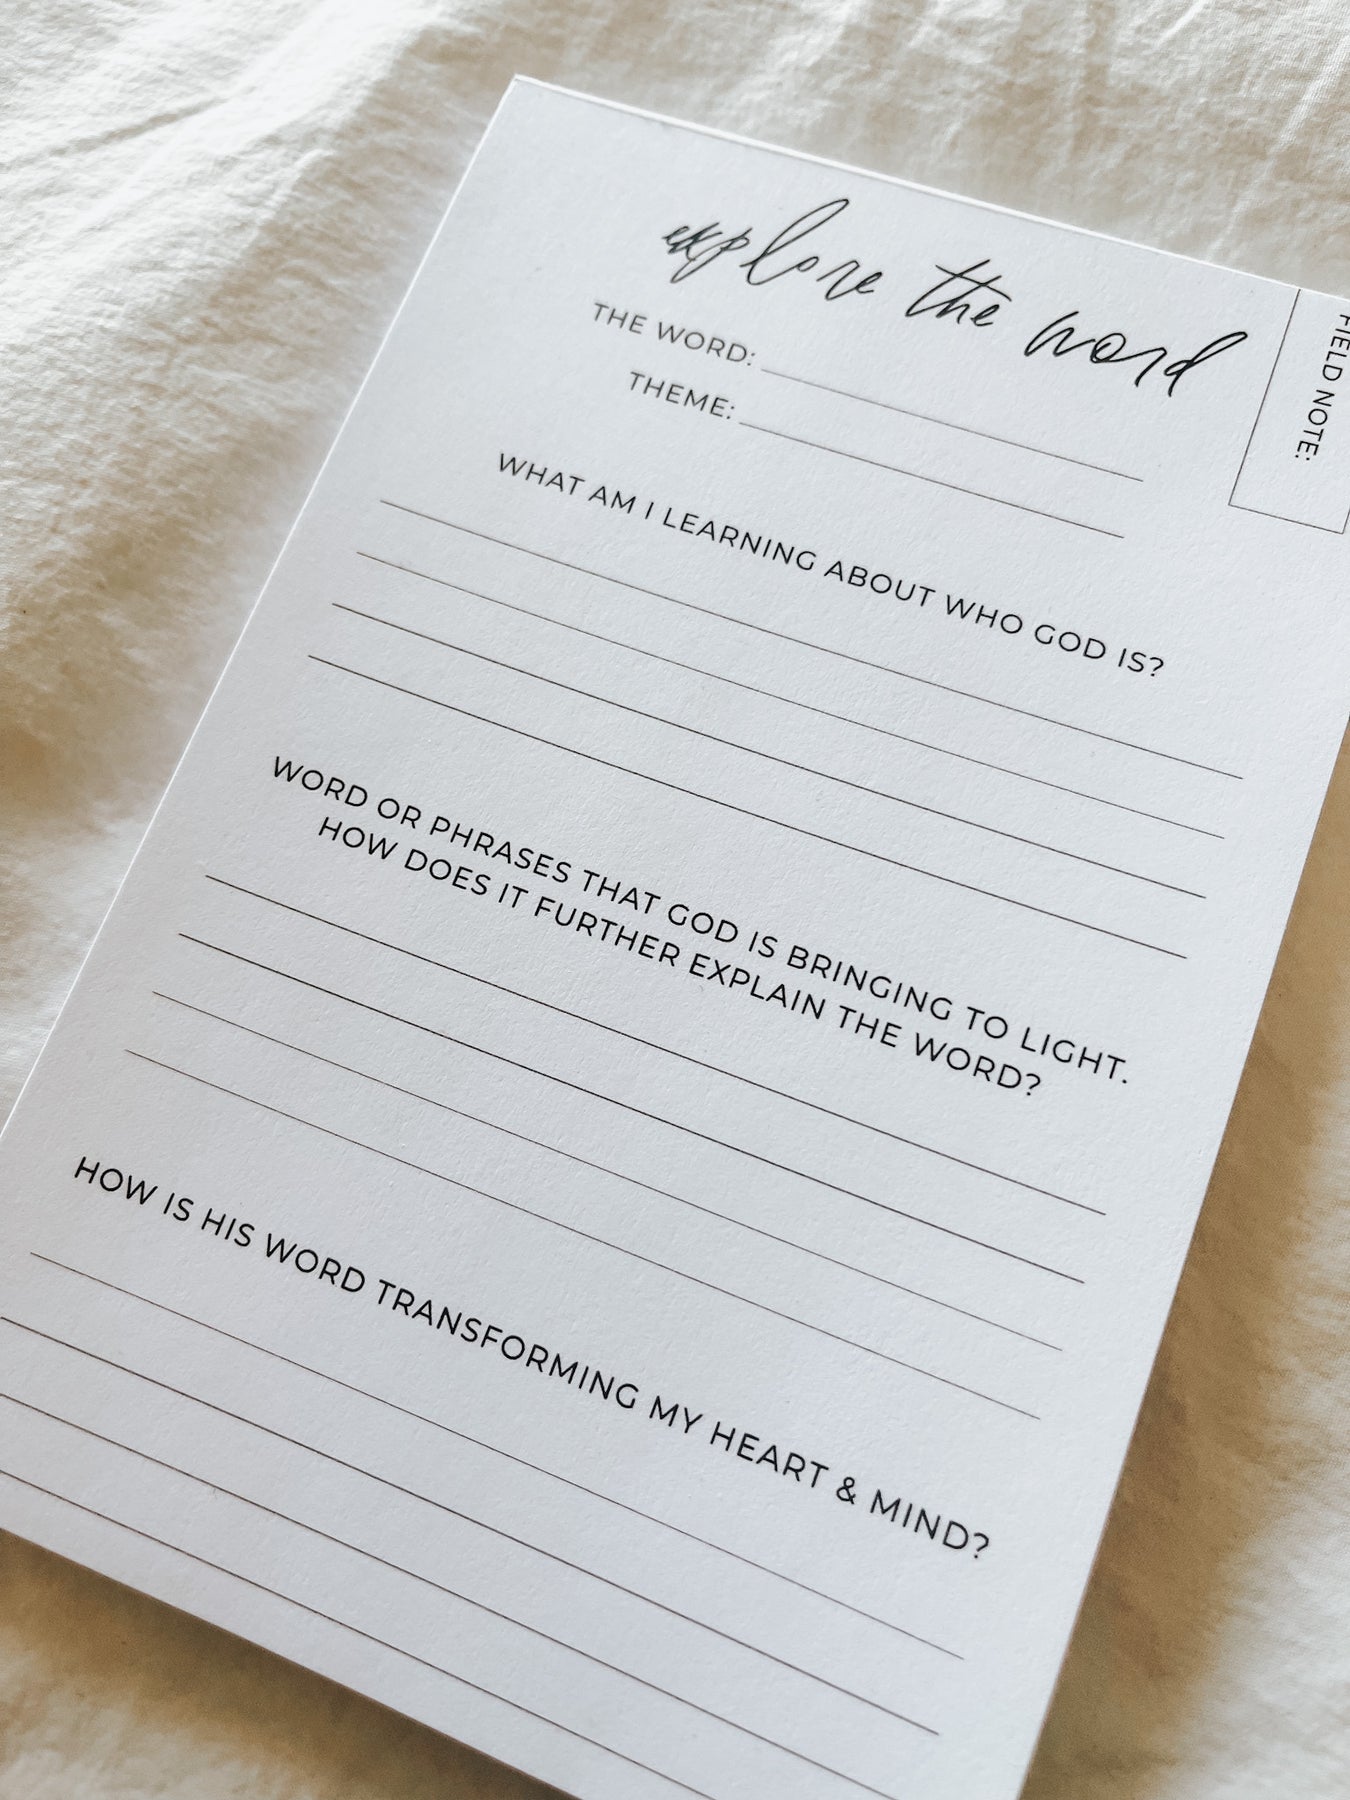 explore the word
FIELD NOTE:
THE WORD:
THEME:
WHAT AM I LEARNING ABOUT WHO GOD IS?
WORD OR PHRASES THAT GOD IS BRINGING TO LIGHT.
HOW DOES IT FURTHER EXPLAIN THE WORD?
HOW IS HIS WORD TRANSFORMING MY HEART & MIND?